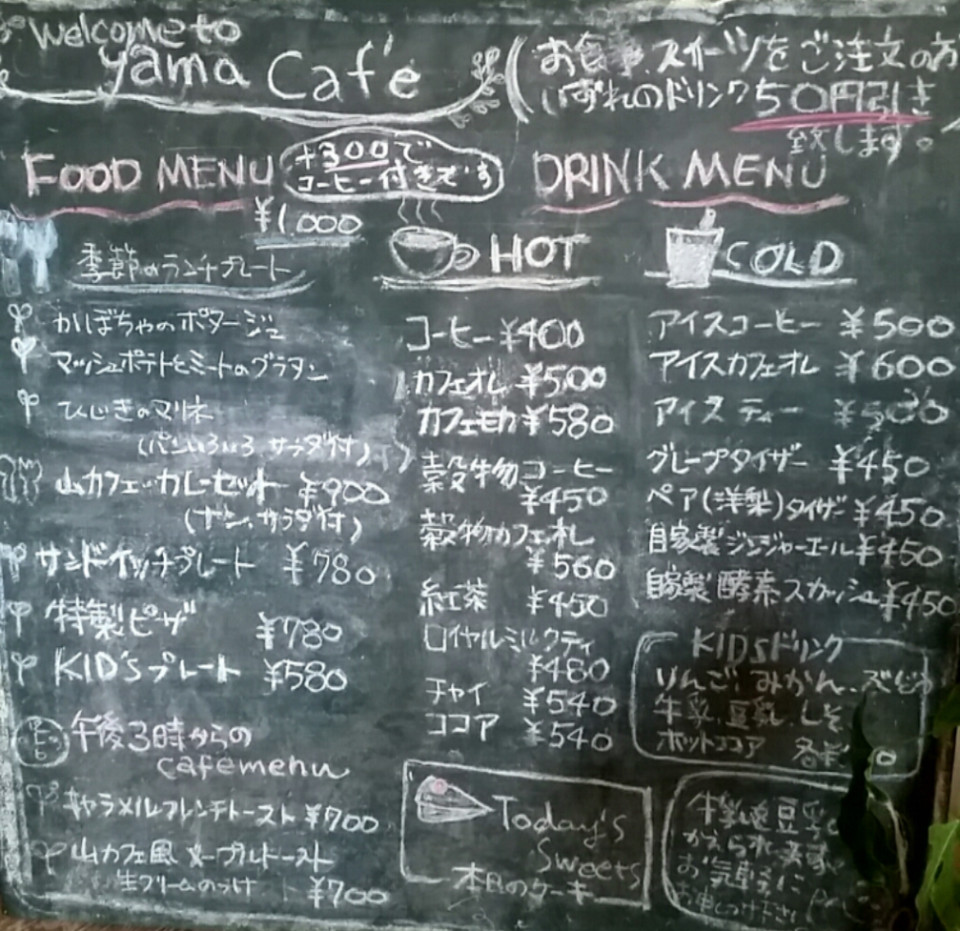 Welcome to
yama Cafe
(お食事、スイーツをご注文の方
いずれのドリンク50円引き
致します。)
FOOD MENU
+300で
コーヒー付きです
¥1,000
季節のランチプレート
かぼちゃのポタージュ
マッシュポテトとミートのグラタン
ひじきのマリネ
(パンいろいろ サラダ付)
山カフェ・カレーセット ¥900
(ナン、サラダ付)
サンドイッチプレート ¥780
特製ピザ ¥780
KID'Sプレート ¥580
午後3時からの
cafemenu
キャラメルフレンチトースト ¥700
山カフェ風 メープルトースト
生クリームのっけ ¥700
DRINK MENU
HOT
コーヒー ¥400
カフェオレ ¥500
カフェモカ ¥580
穀物コーヒー
¥450
穀物カフェオレ
¥560
紅茶 ¥450
ロイヤルミルクティ
¥480
チャイ ¥540
ココア ¥540
Today's
Sweets
本日のケーキ
COLD
アイスコーヒー ¥500
アイスカフェオレ ¥600
アイスティー ¥500
グレープタイザー ¥450
ペア(洋梨)タイザー ¥450
自家製ジンジャーエール ¥450
自家製 酵素スカッシュ ¥450
KIDSドリンク
りんご、みかん、
牛乳、豆乳、しそ
ホットココア
牛乳を豆乳
かえられます
お気軽に
お申しつけ下さい